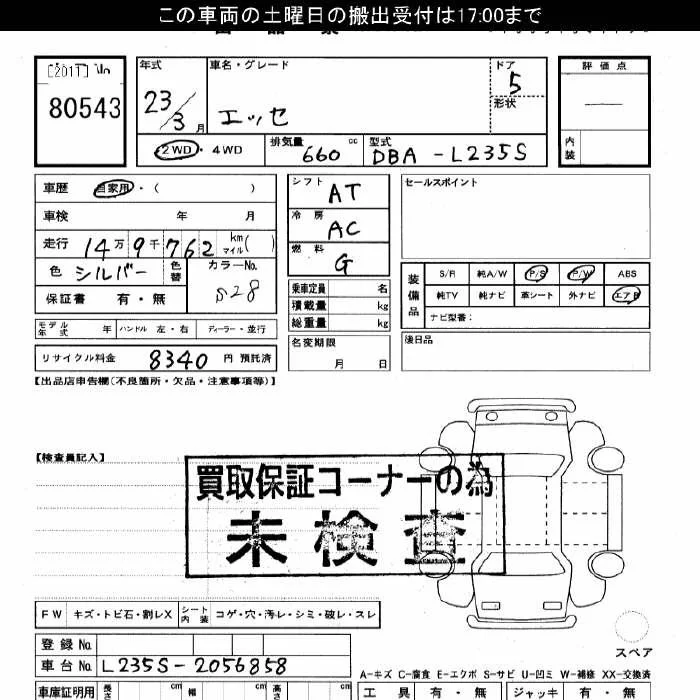 この車両の土曜日の搬出受付は17:00まで
[2011] No
80543
年式
23/3 月
車名・グレード
エッセ
ドア
5
形状
評価点
内装
2WD・4WD
排気量 660 cc
型式 DBA-L235S
車歴 自家用・( )
車検 年 月
走行 14万9千762 km マイル( )
色 シルバー
色替
カラーNo.
S28
保証書 有・無
モデル年式 年 ハンドル 左・右 ディーラー・並行
リサイクル料金 8340 円 預託済
シフト AT
冷房 AC
燃料 G
乗車定員 名
積載量 kg
総重量 kg
名変期限
月 日
セールスポイント
装備品
S/R 純A/W P/S P/W ABS
純TV 純ナビ 革シート 外ナビ エアB
ナビ型番:
後日品
【出品店申告欄(不良箇所・欠品・注意事項等)】
【検査員記入】
買取保証コーナーの為
未検査
FW キズ・トビ石・割レX シート内装 コゲ・穴・汚レ・シミ・破レ・スレ
スペア
登録No.
車台No. L235S-2056858
A-キズ C-腐食 E-エクボ S-サビ U-凹ミ W-補修 XX-交換済
車庫証明用 長さ cm 幅 cm 高さ cm
工具 有・無 ジャッキ 有・無